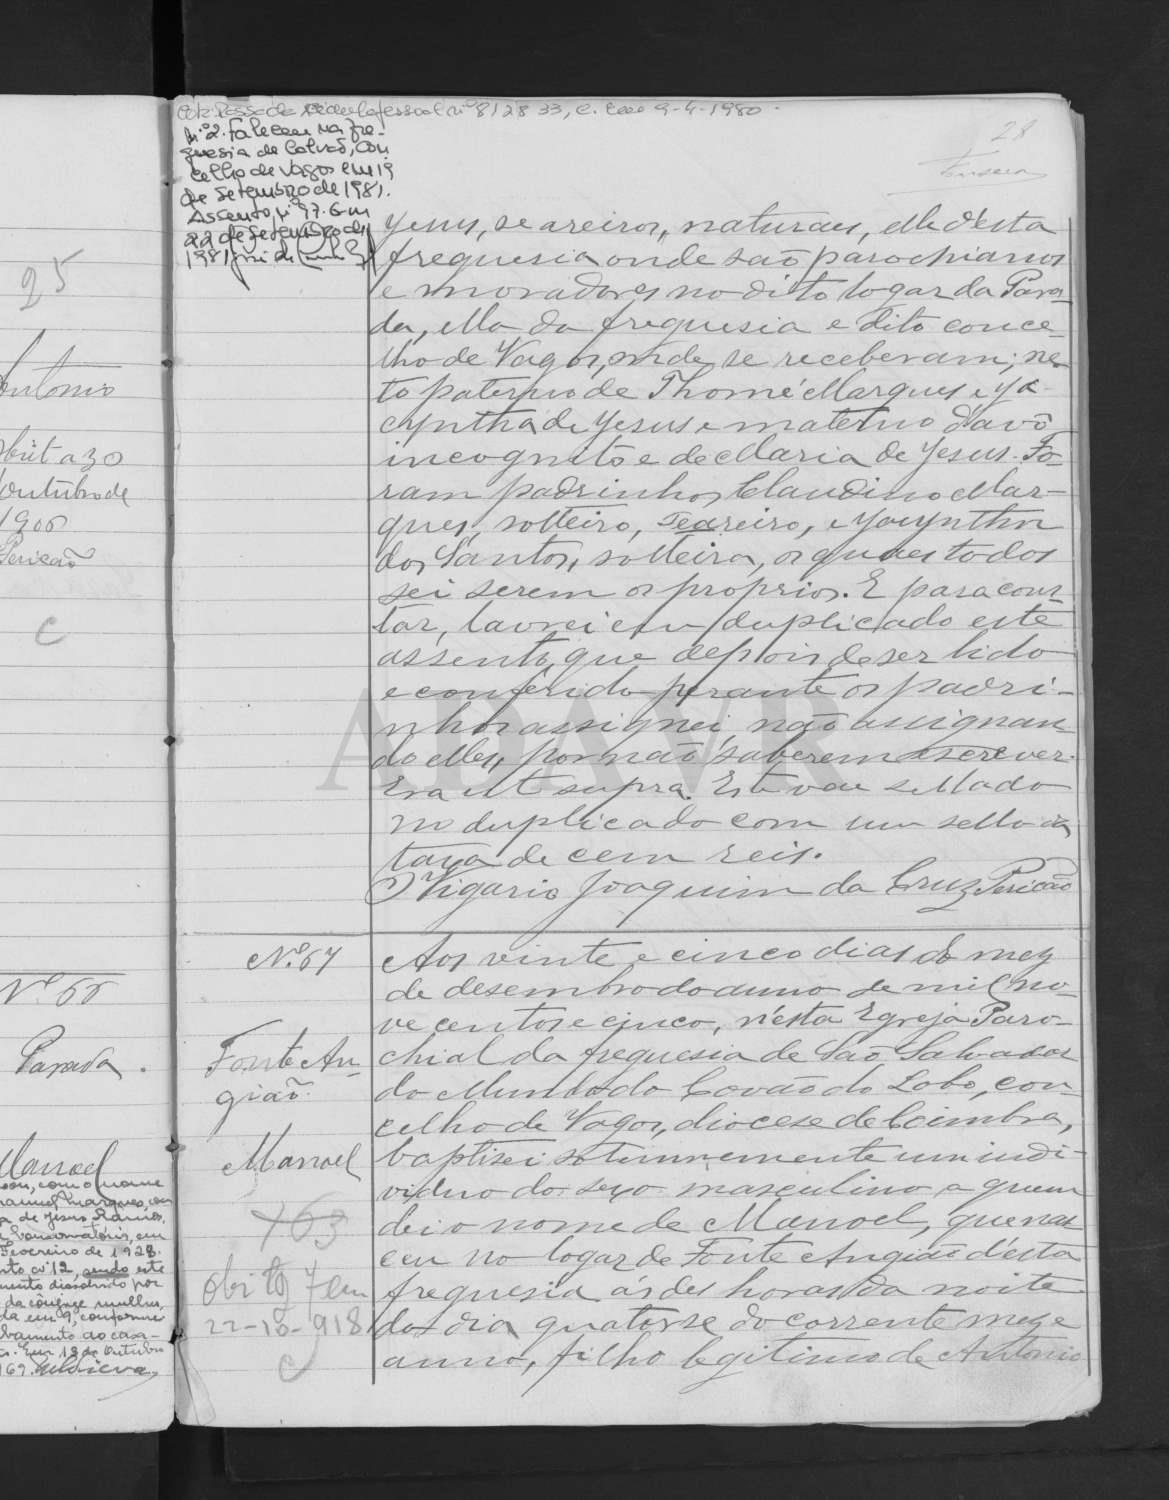 25
Antonio
Obit a 30
Outubro de
1906
Pericão
C
Nº 66
Parada.
Manoel
com o nome
Manuel Marques, com
de Jesus Ramos,
Conservatória, em
Fevereiro de 1928.
nto nº 12, sendo este
mento dissolvido por
da cônjuge mulher,
da em 9, conforme
bamento do casa-
Em 18 de Outubro
169.
Passada nº 812833, e. em 9-4-1980.
Nº 2. Faleceu na fre-
guesia de Calvão, con
celho de Vagos em 19
de Setembro de 1981.
Assento nº 97. Em
22 de Setembro de
1981
28
Fonseca
Jesus, seareiros, naturaes, elle d'esta
freguesia onde são parochianos
e moradores no dito logar da Para-
da, ella da freguesia e dito conce-
lho de Vagos, onde se receberam; ne-
to paterno de Thomé Marques e Ja-
cyntha de Jesus e materno d'avô
incognito e de Maria de Jesus. Fo-
ram padrinhos Claudino Mar-
ques, solteiro, seareiro, e Jacyntha
dos Santos, solteira, os quaes todos
sei serem os proprios. E para cons-
tar, lavrei em duplicado este
assento, que depois de ser lido
e conferido perante os padri-
nhos assignei, não assignan-
do elles, por não saberem escrever.
Era ut supra. Este vae sellado
no duplicado com um sello da
taxa de cem reis.
O Vigario Joaquim da Cruz Pericão
Nº 67
Fonte An-
gião.
Manoel
763
Obito 7 em
22-10-918
C
Aos vinte e cinco dias do mez
de desembro do anno de mil no-
ve centos e cinco, n'esta Egreja Paro-
chial da freguesia de São Salvador
do Mundo do Covão do Lobo, con-
celho de Vagos, diocese de Coimbra,
baptisei solemnemente um indi-
viduo do sexo masculino a quem
dei o nome de Manoel, que nas-
ceu no logar de Fonte Angião d'esta
freguesia ás des horas da noite
do dia quatorse do corrente mez e
anno, filho legitimo de Antonio
ADAVR